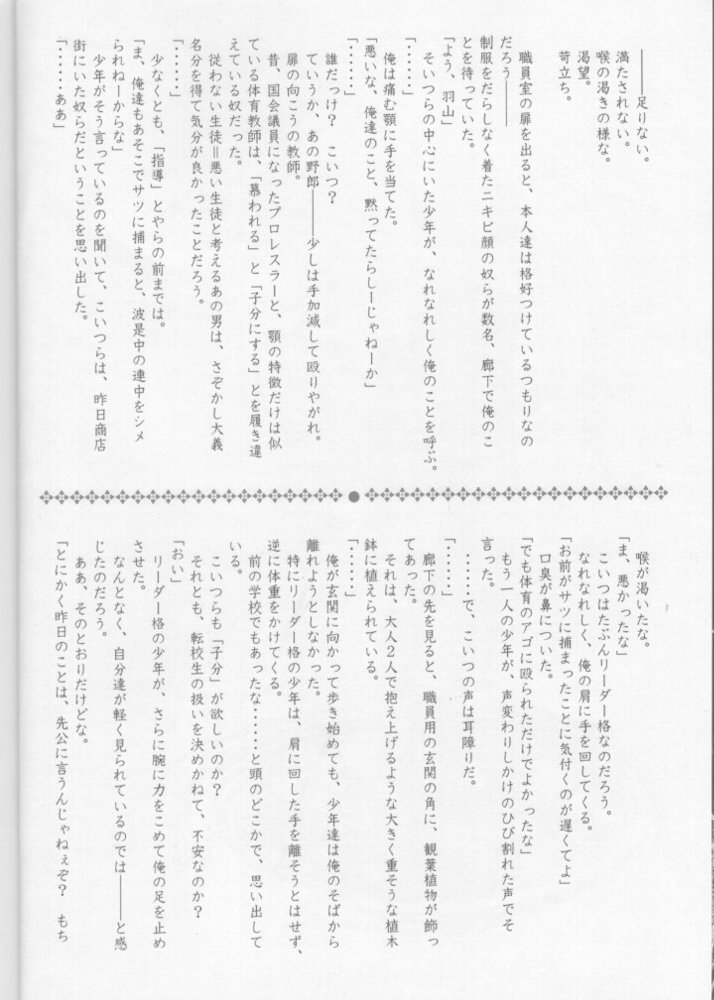 ―――足りない。
満たされない。
喉の渇きの様な。
渇望。
苛立ち。
職員室の扉を出ると、本人達は格好つけているつもりなの
だろう―――
制服をだらしなく着たニキビ顔の奴らが数名、廊下で俺のこ
とを待っていた。
「よう、羽山」
そいつらの中心にいた少年が、なれなれしく俺のことを呼ぶ。
「・・・・・」
俺は痛む顎に手を当てた。
「悪いな、俺達のこと、黙ってたらしーじゃねーか」
「・・・・・」
誰だっけ？　こいつ？
ていうか、あの野郎―――少しは手加減して殴りやがれ。
扉の向こうの教師。
昔、国会議員になったプロレスラーと、顎の特徴だけは似
ている体育教師は、「慕われる」と「子分にする」とを履き違
えている奴だった。
従わない生徒＝悪い生徒と考えるあの男は、さぞかし大義
名分を得て気分が良かったことだろう。
「・・・・・」
少なくとも、「指導」とやらの前までは。
「ま、俺達もあそこでサツに捕まると、波是中の連中をシメ
られねーからな」
少年がそう言っているのを聞いて、こいつらは、昨日商店
街にいた奴らだということを思い出した。
「・・・・・ああ」
喉が渇いたな。
「ま、悪かったな」
こいつはたぶんリーダー格なのだろう。
なれなれしく、俺の肩に手を回してくる。
「お前がサツに捕まったことに気付くのが遅くてよ」
口臭が鼻についた。
「でも体育のアゴに殴られただけでよかったな」
もう一人の少年が、声変わりしかけのひび割れた声でそ
言った。
・・・・・・で、こいつの声は耳障りだ。
「・・・・・・」
廊下の先を見ると、職員用の玄関の角に、観葉植物が飾っ
てあった。
それは、大人２人で抱え上げるような大きく重そうな植木
鉢に植えられている。
「・・・・・」
俺が玄関に向かって歩き始めても、少年達は俺のそばから
離れようとしなかった。
特にリーダー格の少年は、肩に回した手を離そうとはせず、
逆に体重をかけてくる。
前の学校でもあったな・・・・・・と頭のどこかで、思い出して
いる。
こいつらも「子分」が欲しいのか？
それとも、転校生の扱いを決めかねて、不安なのか？
「おい」
リーダー格の少年が、さらに腕に力をこめて俺の足を止め
させた。
なんとなく、自分達が軽く見られているのでは―――と感
じたのだろう。
ああ、そのとおりだけどな。
「とにかく昨日のことは、先公に言うんじゃねぇぞ？　もち